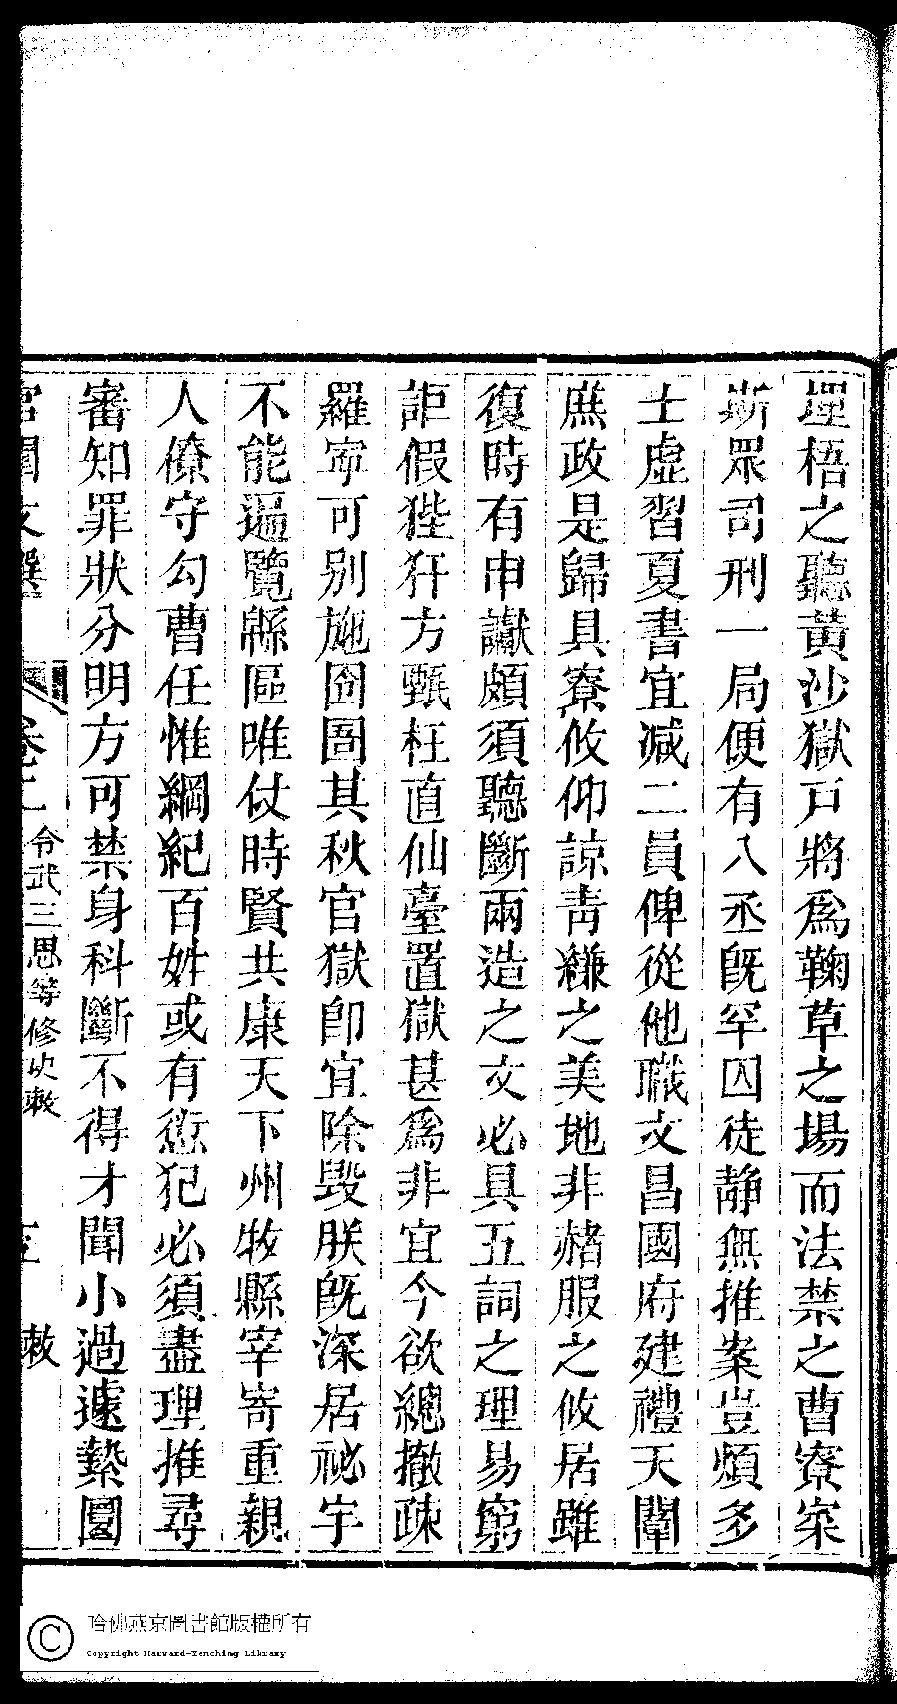 埋梧之聽黄沙獄戸將爲鞠草之場而法禁之曹寮寀
斯眾司刑一局便有八丞旣罕囚徒静無推案豈煩多
士虚習夏書宜减二員俾從他職文昌國府建禮天闈
庶政是歸具寮攸仰諒青縑之美地非赭服之攸居雖
復時有申讞頗須聽斷兩造之文必具五詞之理易窮
詎假狴犴方甄枉直仙臺置獄甚爲非宜今欲總撤疎
羅寜可别施囹圄其秋官獄卽宜除毁朕旣深居祕宇
不能遍覽縣區唯仗時賢共康天下州牧縣宰寄重親
人僚守勾曹任惟綱紀百姓或有愆犯必須盡理推尋
審知罪狀分明方可禁身科斷不得才聞小過遽縶圜
宮閨文選 卷二 令武三思等修史敕 敕
哈佛燕京圖書館版權所有
Copyright Harvard-Yenching Library